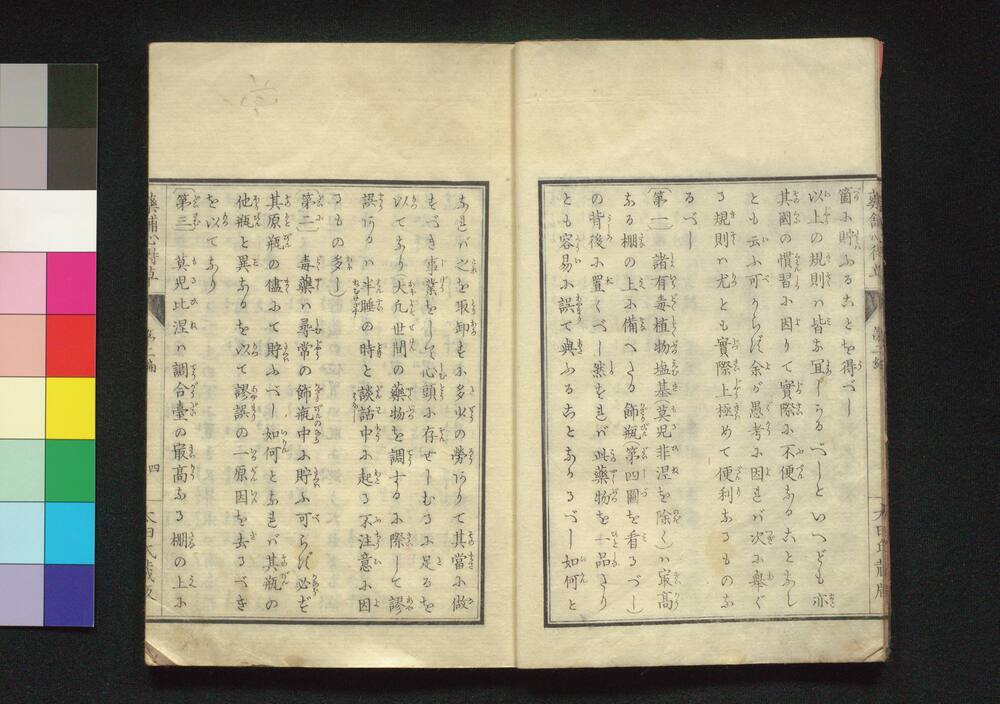 箇ニ貯ふることを得べし
以上の規則ハ皆な宜しかるべしといへども亦
其國の慣習に因りて實際に不便なることなし
とも云ふ可からず余が愚考に因れバ次に擧ぐ
る規則ハ尤とも實際上極めて便利なるものな
るべし
(第一)諸有毒植物塩基(莫児非涅を除く)ハ最高
なる棚の上に備へたる飾瓶(第四圖を看るべし)
の背後に置くべし然れバ此藥物を一品たり
とも容易に誤て與ふることなかるべし如何と
なれバ之を取卸すに多少の勞ありて其當に做
すべき事業をして心頭に存せしむるに足るを
以てなり(大凡世間の藥物を調するに際して謬
誤あるハ半睡の時と談話中に起る不注意に因
るもの多し)
(第二)毒藥ハ尋常の飾瓶中に貯ふ可らず必ず
其原瓶の儘にて貯ふべし如何となれバ其瓶の
他瓶と異なるを以て謬誤の一原因を去るべき
を以てなり
(第三)莫児比涅ハ調合臺の最高なる棚の上に
四